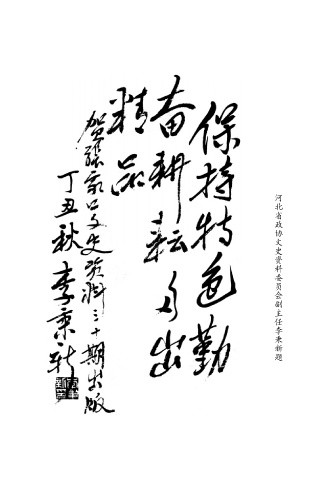 保持特色勤
奋耕耘多出
精品
贺张家口文史资料三十期出版
丁丑秋 李秉新
河北省政协文史资料委员会副主任李秉新题